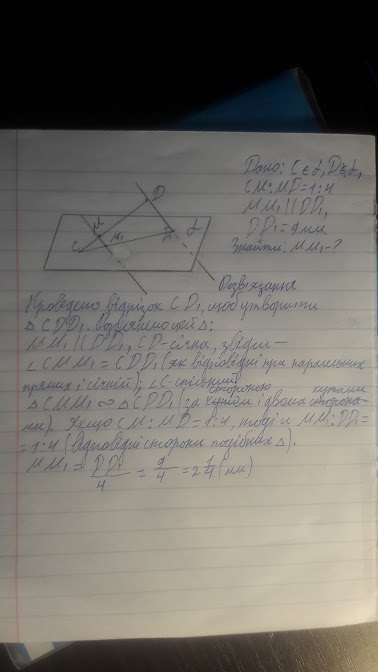 Дано: C ∈ α, D ∉ α,
CM:MD=1:4
MM₁ || DD₁,
DD₁=9мм.
Знайти: MM₁-?
D
M
M₁
α
C
D₁
Розв'язання
Проведемо відрізок CD₁, щоб утворити
△CDD₁. Розглянемо цей △:
MM₁ || DD₁, CD-січна, звідси —
∠CMM₁ = CDD₁ (як відповідні при паралельних
прямих і січній); ∠C-спільний
стороною кутами
△CMM₁ ∾ △CDD₁ (за кутом і двома сторона-
ми). Якщо CM:MD=1:4, тоді й MM₁:DD₁=
=1:4 (відповідні сторони подібних △).
MM₁ = DD₁/4 = 9/4 = 2 1/4 (мм)